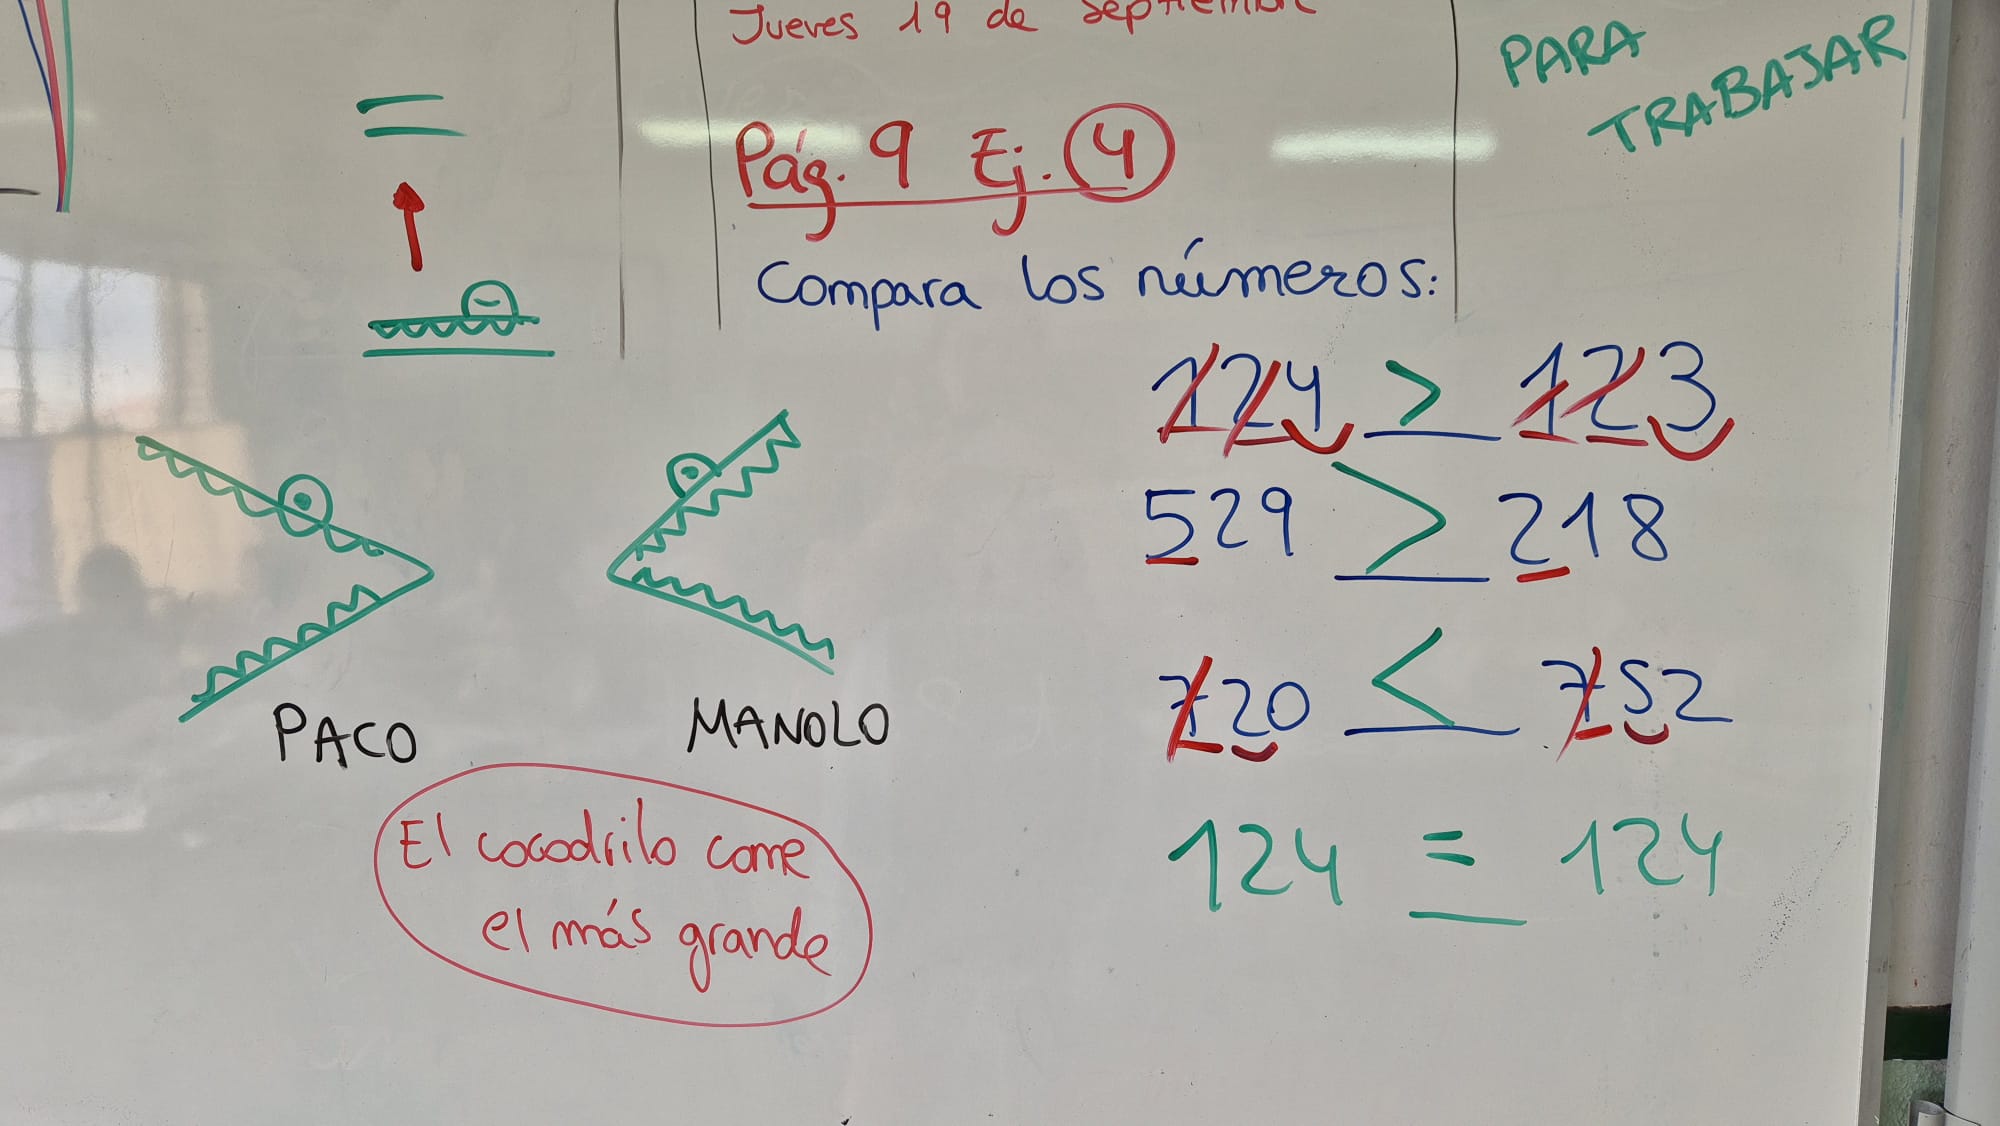 Jueves 19 de septiembre
PARA
TRABAJAR
=
Pág. 9 Ej. 4
Compara los números:
124 > 123
529 > 218
720 < 752
124 = 124
PACO
MANOLO
El cocodrilo come
el más grande